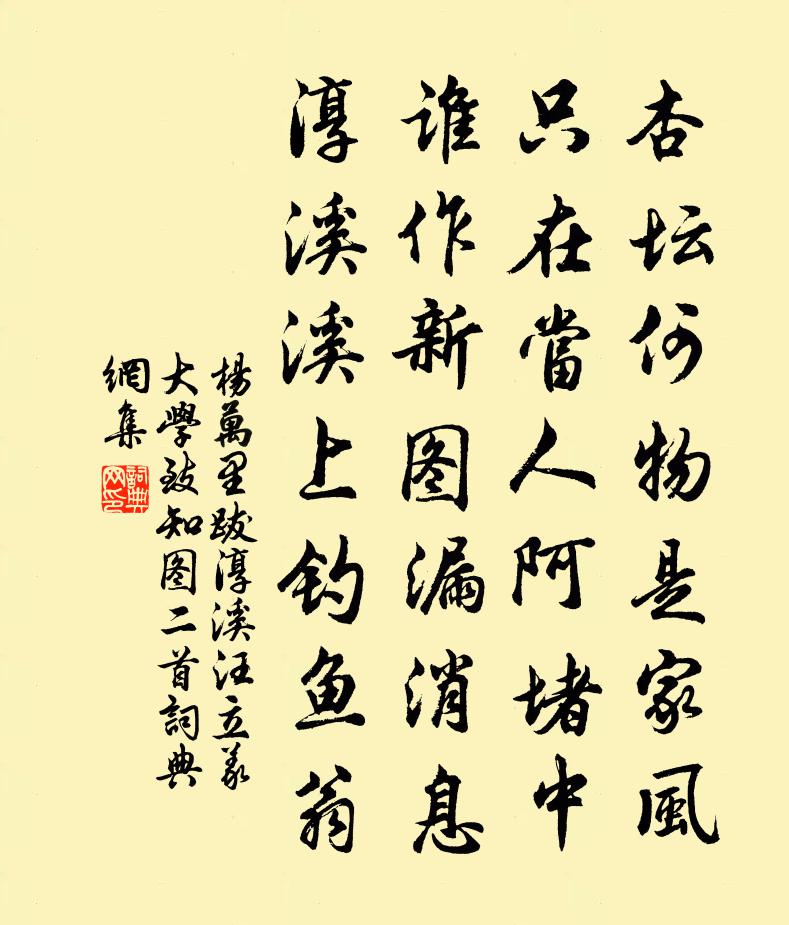 杏坛何物是家風
只在當人阿堵中
谁作新图漏消息
淳溪溪上钓鱼翁
楊萬里跋淳溪汪立義
大學致知图二首詞典
網集
詞典網印